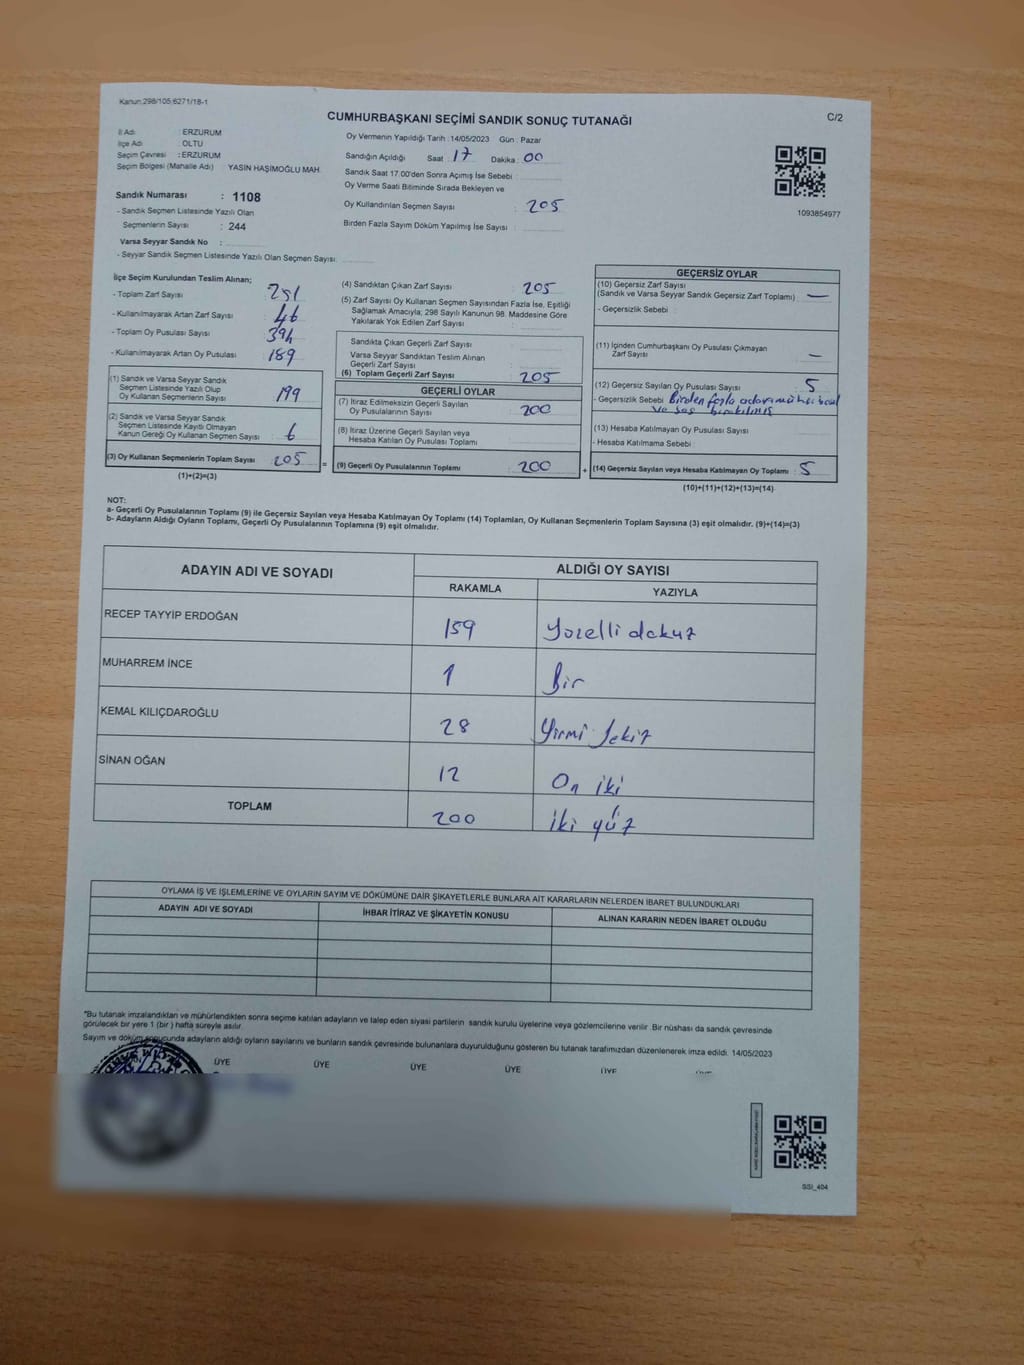 Kanun:298/105,6271/18-1
CUMHURBAŞKANI SEÇİMİ SANDIK SONUÇ TUTANAĞI
C/2
İl Adı : ERZURUM
İlçe Adı : OLTU
Seçim Çevresi : ERZURUM
Seçim Bölgesi (Mahalle Adı) YASİN HAŞİMOĞLU MAH.
Oy Vermenin Yapıldığı Tarih :14/05/2023 Gün : Pazar
Sandığın Açıldığı Saat : 17 Dakika : 00
Sandık Saat 17.00'den Sonra Açımış İse Sebebi :
Oy Verme Saati Bitiminde Sırada Bekleyen ve
Oy Kullandırılan Seçmen Sayısı : 205
Birden Fazla Sayım Döküm Yapılmış İse Sayısı :
1093854977
Sandık Numarası : 1108
- Sandık Seçmen Listesinde Yazılı Olan
Seçmenlerin Sayısı : 244
Varsa Seyyar Sandık No :
- Seyyar Sandık Seçmen Listesinde Yazılı Olan Seçmen Sayısı:
İlçe Seçim Kurulundan Teslim Alınan;
- Toplam Zarf Sayısı : 251
- Kullanılmayarak Artan Zarf Sayısı : 46
- Toplam Oy Pusulası Sayısı : 394
- Kullanılmayarak Artan Oy Pusulası : 189
(1) Sandık ve Varsa Seyyar Sandık
Seçmen Listesinde Yazılı Olup
Oy Kullanan Seçmenlerin Sayısı : 199
(2) Sandık ve Varsa Seyyar Sandık
Seçmen Listesinde Kayıtlı Olmayan
Kanun Gereği Oy Kullanan Seçmen Sayısı : 6
(3) Oy Kullanan Seçmenlerin Toplam Sayısı : 205
(1)+(2)=(3)
(4) Sandıktan Çıkan Zarf Sayısı : 205
(5) Zarf Sayısı Oy Kullanan Seçmen Sayısından Fazla İse, Eşitliği
Sağlamak Amacıyla; 298 Sayılı Kanunun 98. Maddesine Göre
Yakılarak Yok Edilen Zarf Sayısı :
Sandıkta Çıkan Geçerli Zarf Sayısı :
Varsa Seyyar Sandıktan Teslim Alınan
Geçerli Zarf Sayısı :
(6) Toplam Geçerli Zarf Sayısı : 205
GEÇERLİ OYLAR
(7) İtiraz Edilmeksizin Geçerli Sayılan
Oy Pusulalarının Sayısı : 200
(8) İtiraz Üzerine Geçerli Sayılan veya
Hesaba Katılan Oy Pusulası Toplamı :
= (9) Geçerli Oy Pusulalarının Toplamı : 200 +
GEÇERSİZ OYLAR
(10) Geçersiz Zarf Sayısı
(Sandık ve Varsa Seyyar Sandık Geçersiz Zarf Toplamı) : —
- Geçersizlik Sebebi :
(11) İçinden Cumhurbaşkanı Oy Pusulası Çıkmayan
Zarf Sayısı : —
(12) Geçersiz Sayılan Oy Pusulası Sayısı : 5
- Geçersizlik Sebebi : Birden fazla adaya
ve
(13) Hesaba Katılmayan Oy Pusulası Sayısı :
- Hesaba Katılmama Sebebi :
(14) Geçersiz Sayılan veya Hesaba Katılmayan Oy Toplamı : 5
(10)+(11)+(12)+(13)=(14)
NOT:
a- Geçerli Oy Pusulalarının Toplamı (9) ile Geçersiz Sayılan veya Hesaba Katılmayan Oy Toplamı (14) Toplamları, Oy Kullanan Seçmenlerin Toplam Sayısına (3) eşit olmalıdır. (9)+(14)=(3)
b- Adayların Aldığı Oyların Toplamı, Geçerli Oy Pusulalarının Toplamına (9) eşit olmalıdır.
ADAYIN ADI VE SOYADI
ALDIĞI OY SAYISI
RAKAMLA YAZIYLA
RECEP TAYYİP ERDOĞAN 159 Yüzelli dokuz
MUHARREM İNCE 1 Bir
KEMAL KILIÇDAROĞLU 28 Yirmi sekiz
SİNAN OĞAN 12 On iki
TOPLAM 200 iki yüz
OYLAMA İŞ VE İŞLEMLERİNE VE OYLARIN SAYIM VE DÖKÜMÜNE DAİR ŞİKAYETLERLE BUNLARA AİT KARARLARIN NELERDEN İBARET BULUNDUKLARI
ADAYIN ADI VE SOYADI İHBAR İTİRAZ VE ŞİKAYETİN KONUSU ALINAN KARARIN NEDEN İBARET OLDUĞU
*Bu tutanak imzalandıktan ve mühürlendikten sonra seçime katılan adayların ve talep eden siyasi partilerin sandık kurulu üyelerine veya gözlemcilerine verilir .Bir nüshası da sandık çevresinde
görülecek bir yere 1 (bir ) hafta süreyle asılır.
Sayım ve döküm sonucunda adayların aldığı oyların sayılarını ve bunların sandık çevresinde bulunanlara duyurulduğunu gösteren bu tutanak tarafımızdan düzenlenerek imza edildi. 14/05/2023
ÜYE ÜYE ÜYE ÜYE ÜYE ÜYE
SSI_404